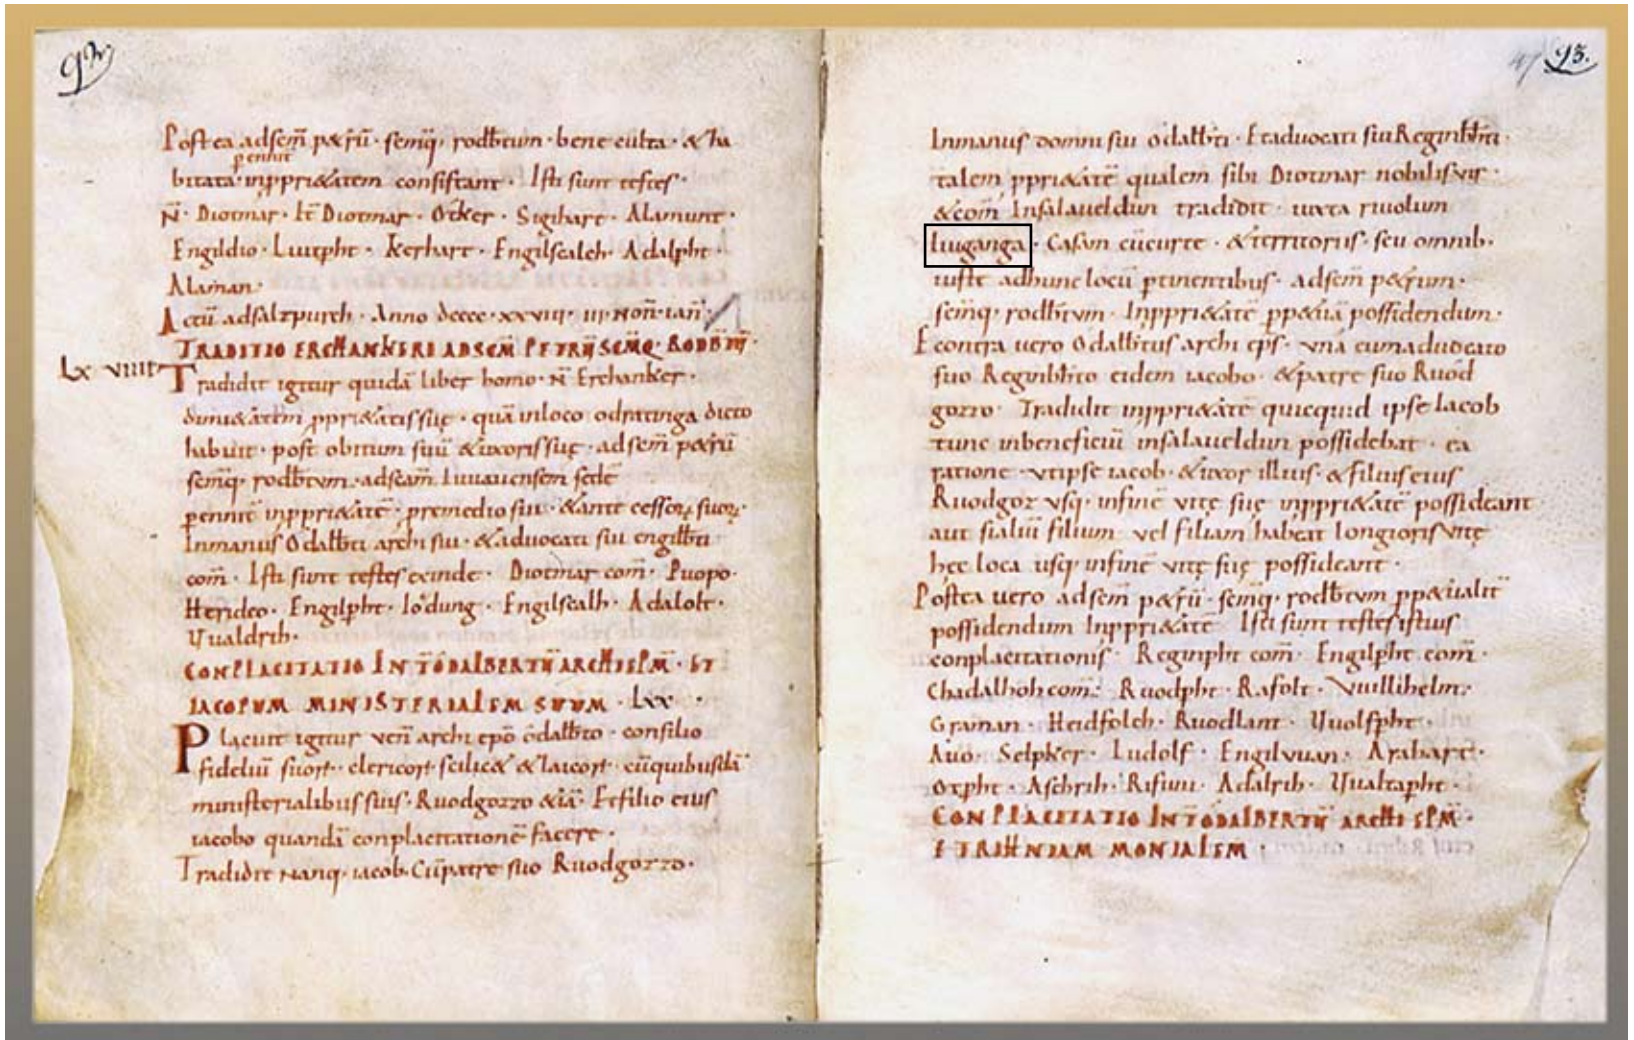 92
Postea adsem̄ p&rū · semq̄· rodb̄tum · bene culta · & ha
bitata pennit̄ inppri&atem consistant · Isti sunt testes ·
N̄ · Diotmar · It̄ Diotmar · Otker · Sigihart · Alamunt ·
Engildio · Liutpht · Kerhart · Engilscalch · Adalpht ·
Alaman ·
Actū adsalzpurch · Anno dcccc · xxviii · iiii Non̄ · ian̄
TRADITIO ERCHANKERI ADSCM̄ PETRŪ SCMQ̄ · RODB̄TŪ ·
Lxviiii
Tradidit igitur quidā liber homo · N̄ Erchanker ·
ppri&atis suę · quā inloco odratinga dicto
habuit · post obitum suū & uxoris suę · adsem̄ p&rū
semq̄· rodb̄tvm · adseam̄ Iuuauensem sedē
pennit̄ inppri&atē · premedio sui · & antecessorꝝ suorꝝ ·
Inmanus Odalb̄ti archi sui · & advocati sui engilb̄ti
com̄ · Isti sunt testes exinde · Diotmar com̄ · Puopo ·
Herideo · Engilpht · Iodung · Engilscalh · Adalolt ·
Uualdrih ·
CONPLACITATIO INT̄ ODALBERTŪ ARCHIEPM̄ · ET
IACOPVM MINISTERIALEM SUUM · Lxx ·
Placuit igitur ven̄ archi epō odalb̄to · consilio
fideliū suorꝝ · clericorꝝ scilic& & laicorꝝ · cū quibusdā
ministerialibus suis · Ruodgozzo &iā · Et filio eius
iacobo quandā conplacitationē facere ·
Tradidit nanq̄ · iacob · Cū patre suo Ruodgozzo ·
47 93.
Inmanus domni sui odalb̄ti · Et advocati sui Reginb̄hti ·
talem ppri&atē qualem sibi Diotmar nobilis vir ·
& com̄ Insalaueldun tradidit · iuxta riuolum
liuganga · Casam cūcurte · & territoriis · seu omnib·
iuste adhunc locū ptinentibus · adsem̄ p&rum ·
semq̄· rodb̄tvm · Inppri&atē pp&uā possidendum ·
Econtra uero Odalb̄tus archi ep̄s · vna cum aduocato
suo Reginb̄hto eidem iacobo · & patre suo Ruod
gozzo · Tradidit inppri&atē quicquid ipse Iacob
tunc inbeneficiū insalaueldun possidebat · ea
ratione · vt ipse iacob · & uxor illius · & filius eius
Ruodgoz vsq̄· infinē vitę suę inppri&atē possideant
aut si aliū filium · vel filiam habeat longioris vitę
hec loca usq̄· infinē vitę suę possideant ·
Postea uero adsem̄ p&rū · semq̄· rodb̄tvm pp&ualit̄
possidendum Inppri&atē Isti sunt testes istius
conplacitationis · Reginpht com̄ · Engilpht com̄ ·
Chadalhoh com̄ · Ruodpht · Rafolt · Vuillihelm ·
Graman · Heidfolch · Ruodlant · Uuolfpht ·
Auo · Selpker · Ludolf · Engilvuan · Arahart ·
Otpht · Aschrih · Rifuin · Adalrih · Uualtapht ·
CONPLACITATIO INT̄ ODALBERTŪ ARCHI EPM̄ ·
ET RIHNIAM MONIALEM ·